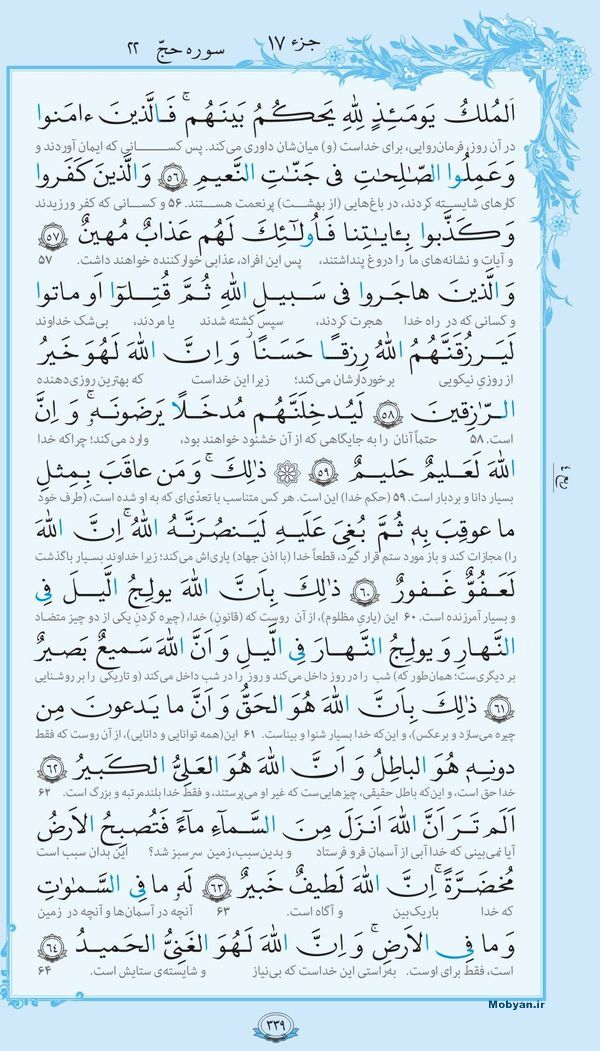 جزء ۱۷
سوره حجّ ۲۲
اَلمُلكُ يَومَئِذٍ لِلّٰهِ يَحكُمُ بَينَهُم ۚ فَالَّذينَ ءامَنوا
در آن روز، فرمان‌روایی، برای خداست (و) میان‌شان داوری می‌کند. پس کسانی که ایمان آوردند و
وَ عَمِلُوا الصّالِحاتِ فى جَنّاتِ النَّعيمِ ۵۶ وَ الَّذينَ كَفَروا
کارهای شایسته کردند، در باغ‌هایی (از بهشت) پرنعمت هستند. ۵۶ و کسانی که کفر ورزیدند
وَ كَذَّبوا بِـٔاياتِنا فَاُولٰئِكَ لَهُم عَذابٌ مُهينٌ ۵۷
و آیات و نشانه‌های ما را دروغ پنداشتند، پس این افراد، عذابی خوارکننده خواهند داشت. ۵۷
وَ الَّذينَ هاجَروا فى سَبيلِ اللّٰهِ ثُمَّ قُتِلوٓا اَو ماتوا
و کسانی که در راه خدا هجرت کردند، سپس کشته شدند یا مردند، بی‌شک خداوند
لَيَرزُقَنَّهُمُ اللّٰهُ رِزقًا حَسَنًا ۚ وَ اِنَّ اللّٰهَ لَهُوَ خَيرُ
از روزی نیکویی برخوردارشان می‌کند؛ زیرا این خداست که بهترین روزی‌دهنده
الرّازِقينَ ۵۸ لَيُدخِلَنَّهُم مُدخَلًا يَرضَونَهٗ ۚ وَ اِنَّ
است. ۵۸ حتماً آنان را به جایگاهی که از آن خشنود خواهند بود، وارد می‌کند؛ چراکه خدا
اللّٰهَ لَعَليمٌ حَليمٌ ۵۹ ذٰلِكَ ۚ وَ مَن عاقَبَ بِمِثلِ
بسیار دانا و بردبار است. ۵۹ (حکم خدا) این است. هر کس متناسب با تعدّی‌ای که به او شده است، (طرف خود
ما عوقِبَ بِهٖ ثُمَّ بُغِىَ عَلَيهِ لَيَنصُرَنَّهُ اللّٰهُ ۚ اِنَّ اللّٰهَ
را) مجازات کند و باز مورد ستم قرار گیرد، قطعاً خدا (با اذن جهاد) یاری‌اش می‌کند؛ زیرا خداوند بسیار باگذشت
لَعَفُوٌّ غَفورٌ ۶۰ ذٰلِكَ بِاَنَّ اللّٰهَ يولِجُ الَّيلَ فِى
و بسیار آمرزنده است. ۶۰ این (یاریِ مظلوم)، از آن روست که (قانونِ) خدا، (چیره کردنِ یکی از دو چیز متضاد
النَّهارِ وَ يولِجُ النَّهارَ فِى الَّيلِ وَ اَنَّ اللّٰهَ سَميعٌ بَصيرٌ
بر دیگری‌ست؛ همان‌طور که) شب را در روز داخل می‌کند و روز را در شب داخل می‌کند (و تاریکی را بر روشنایی
۶۱ ذٰلِكَ بِاَنَّ اللّٰهَ هُوَ الحَقُّ وَ اَنَّ ما يَدعونَ مِن
چیره می‌سازد و برعکس)، و این‌که خدا بسیار شنوا و بیناست. ۶۱ این (همه توانایی و دانایی)، از آن روست که فقط
دونِهٖ هُوَ الباطِلُ وَ اَنَّ اللّٰهَ هُوَ العَلِىُّ الكَبيرُ ۶۲
خدا حق است، و این‌که باطل حقیقی، چیزهایی‌ست که غیر او می‌پرستند، و فقط خدا بلندمرتبه و بزرگ است. ۶۲
اَلَم تَرَ اَنَّ اللّٰهَ اَنزَلَ مِنَ السَّمآءِ مآءً فَتُصبِحُ الاَرضُ
آیا نمی‌بینی که خدا آبی از آسمان فرو فرستاد و بدین‌سبب، زمین سرسبز شد؟ این بدان سبب است
مُخضَرَّةً ۚ اِنَّ اللّٰهَ لَطيفٌ خَبيرٌ ۶۳ لَهٗ ما فِى السَّمٰوٰتِ
که خدا باریک‌بین و آگاه است. ۶۳ آنچه در آسمان‌ها و آنچه در زمین
وَ ما فِى الاَرضِ ۚ وَ اِنَّ اللّٰهَ لَهُوَ الغَنِىُّ الحَميدُ ۶۴
است، فقط برای اوست. به‌راستی این خداست که بی‌نیاز و شایسته‌ی ستایش است. ۶۴
Mobyan.ir
۳۳۹